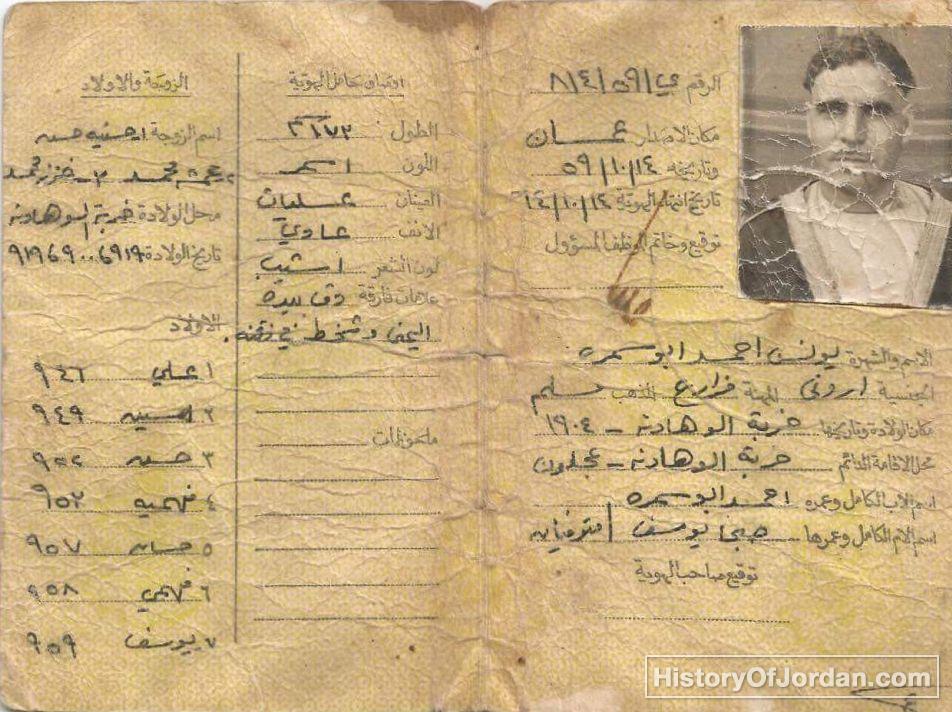 الرقم ي/٥٩/٨/٤
مكان الاصدار عمان
وتاريخه ٥٩/١٠/١٤
تاريخ انتهاء الهوية ٦٤/١٠/١٤
توقيع وخاتم الموظف المسؤول
الاسم والشهرة يونس احمد ابو سمره
الجنسية اردني المهنة مزارع المذهب مسلم
مكان الولادة وتاريخها خربة الوهادنه - ١٩٠٤
محل الاقامة الدائم خربة الوهادنه - عجلون
اسم الاب الكامل وعمره احمد ابو سمره
اسم الام الكامل وعمرها صبحا يوسف / متوفيان
توقيع صاحب الهوية
اوصاف حامل الهوية
الطول ١٧٢
اللون اسمر
العينان عسليات
الانف عادي
لون الشعر اشيب
علامات فارقة دق بيده
اليمنى وشخط في ذقنه.
ملحوظات
الزوجة والاولاد
اسم الزوجة ١ حسنيه حسن
محمد محمد
محل الولادة خربة الوهادنه
تاريخ الولادة
الاولاد
١ علي ٩٤٦
٢ ٩٤٩
٣ حسن
٤ فهميه ٩٥٢
٥ حسان ٩٥٧
٦ فهمي ٩٥٨
٧ يوسف ٩٥٩
HistoryOfJordan.com